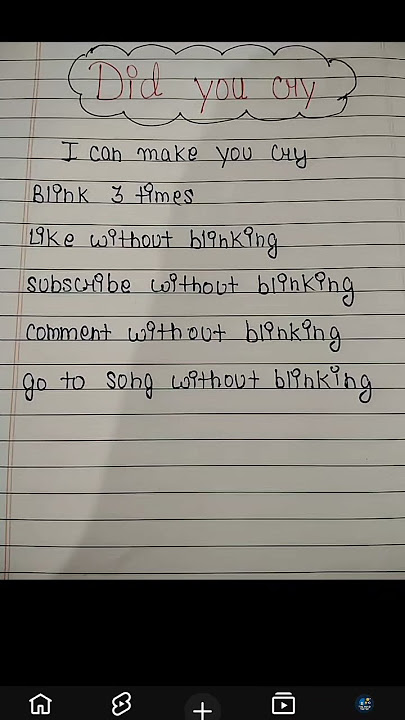 Did you cry
I can make you cry
Blink 3 times
Like without blinking
subscribe without blinking
comment without blinking
go to song without blinking